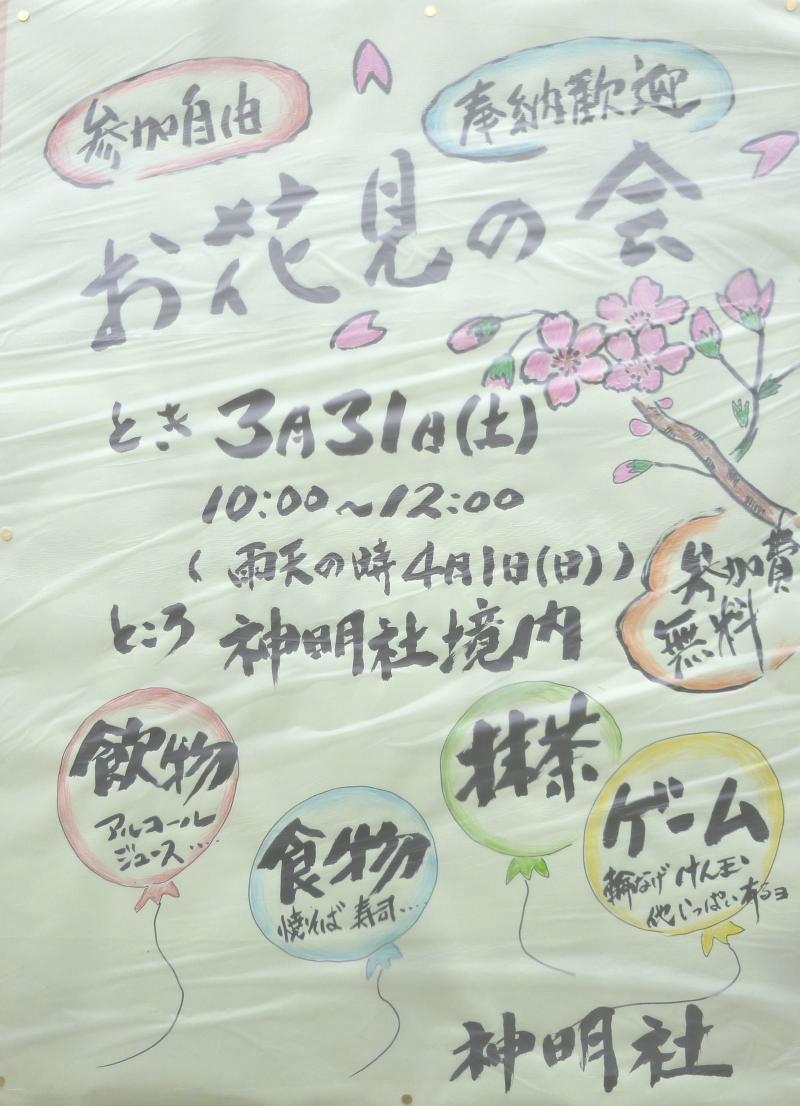 参加自由
奉納歓迎
お花見の会
とき 3月31日(土)
10:00~12:00
(雨天の時4月1日(日))
ところ 神明社境内
参加費
無料
飲物
アルコール
ジュース....
食物
焼そば 寿司...
抹茶
ゲーム
輪なげ けん玉
他いっぱい有るヨ
神明社